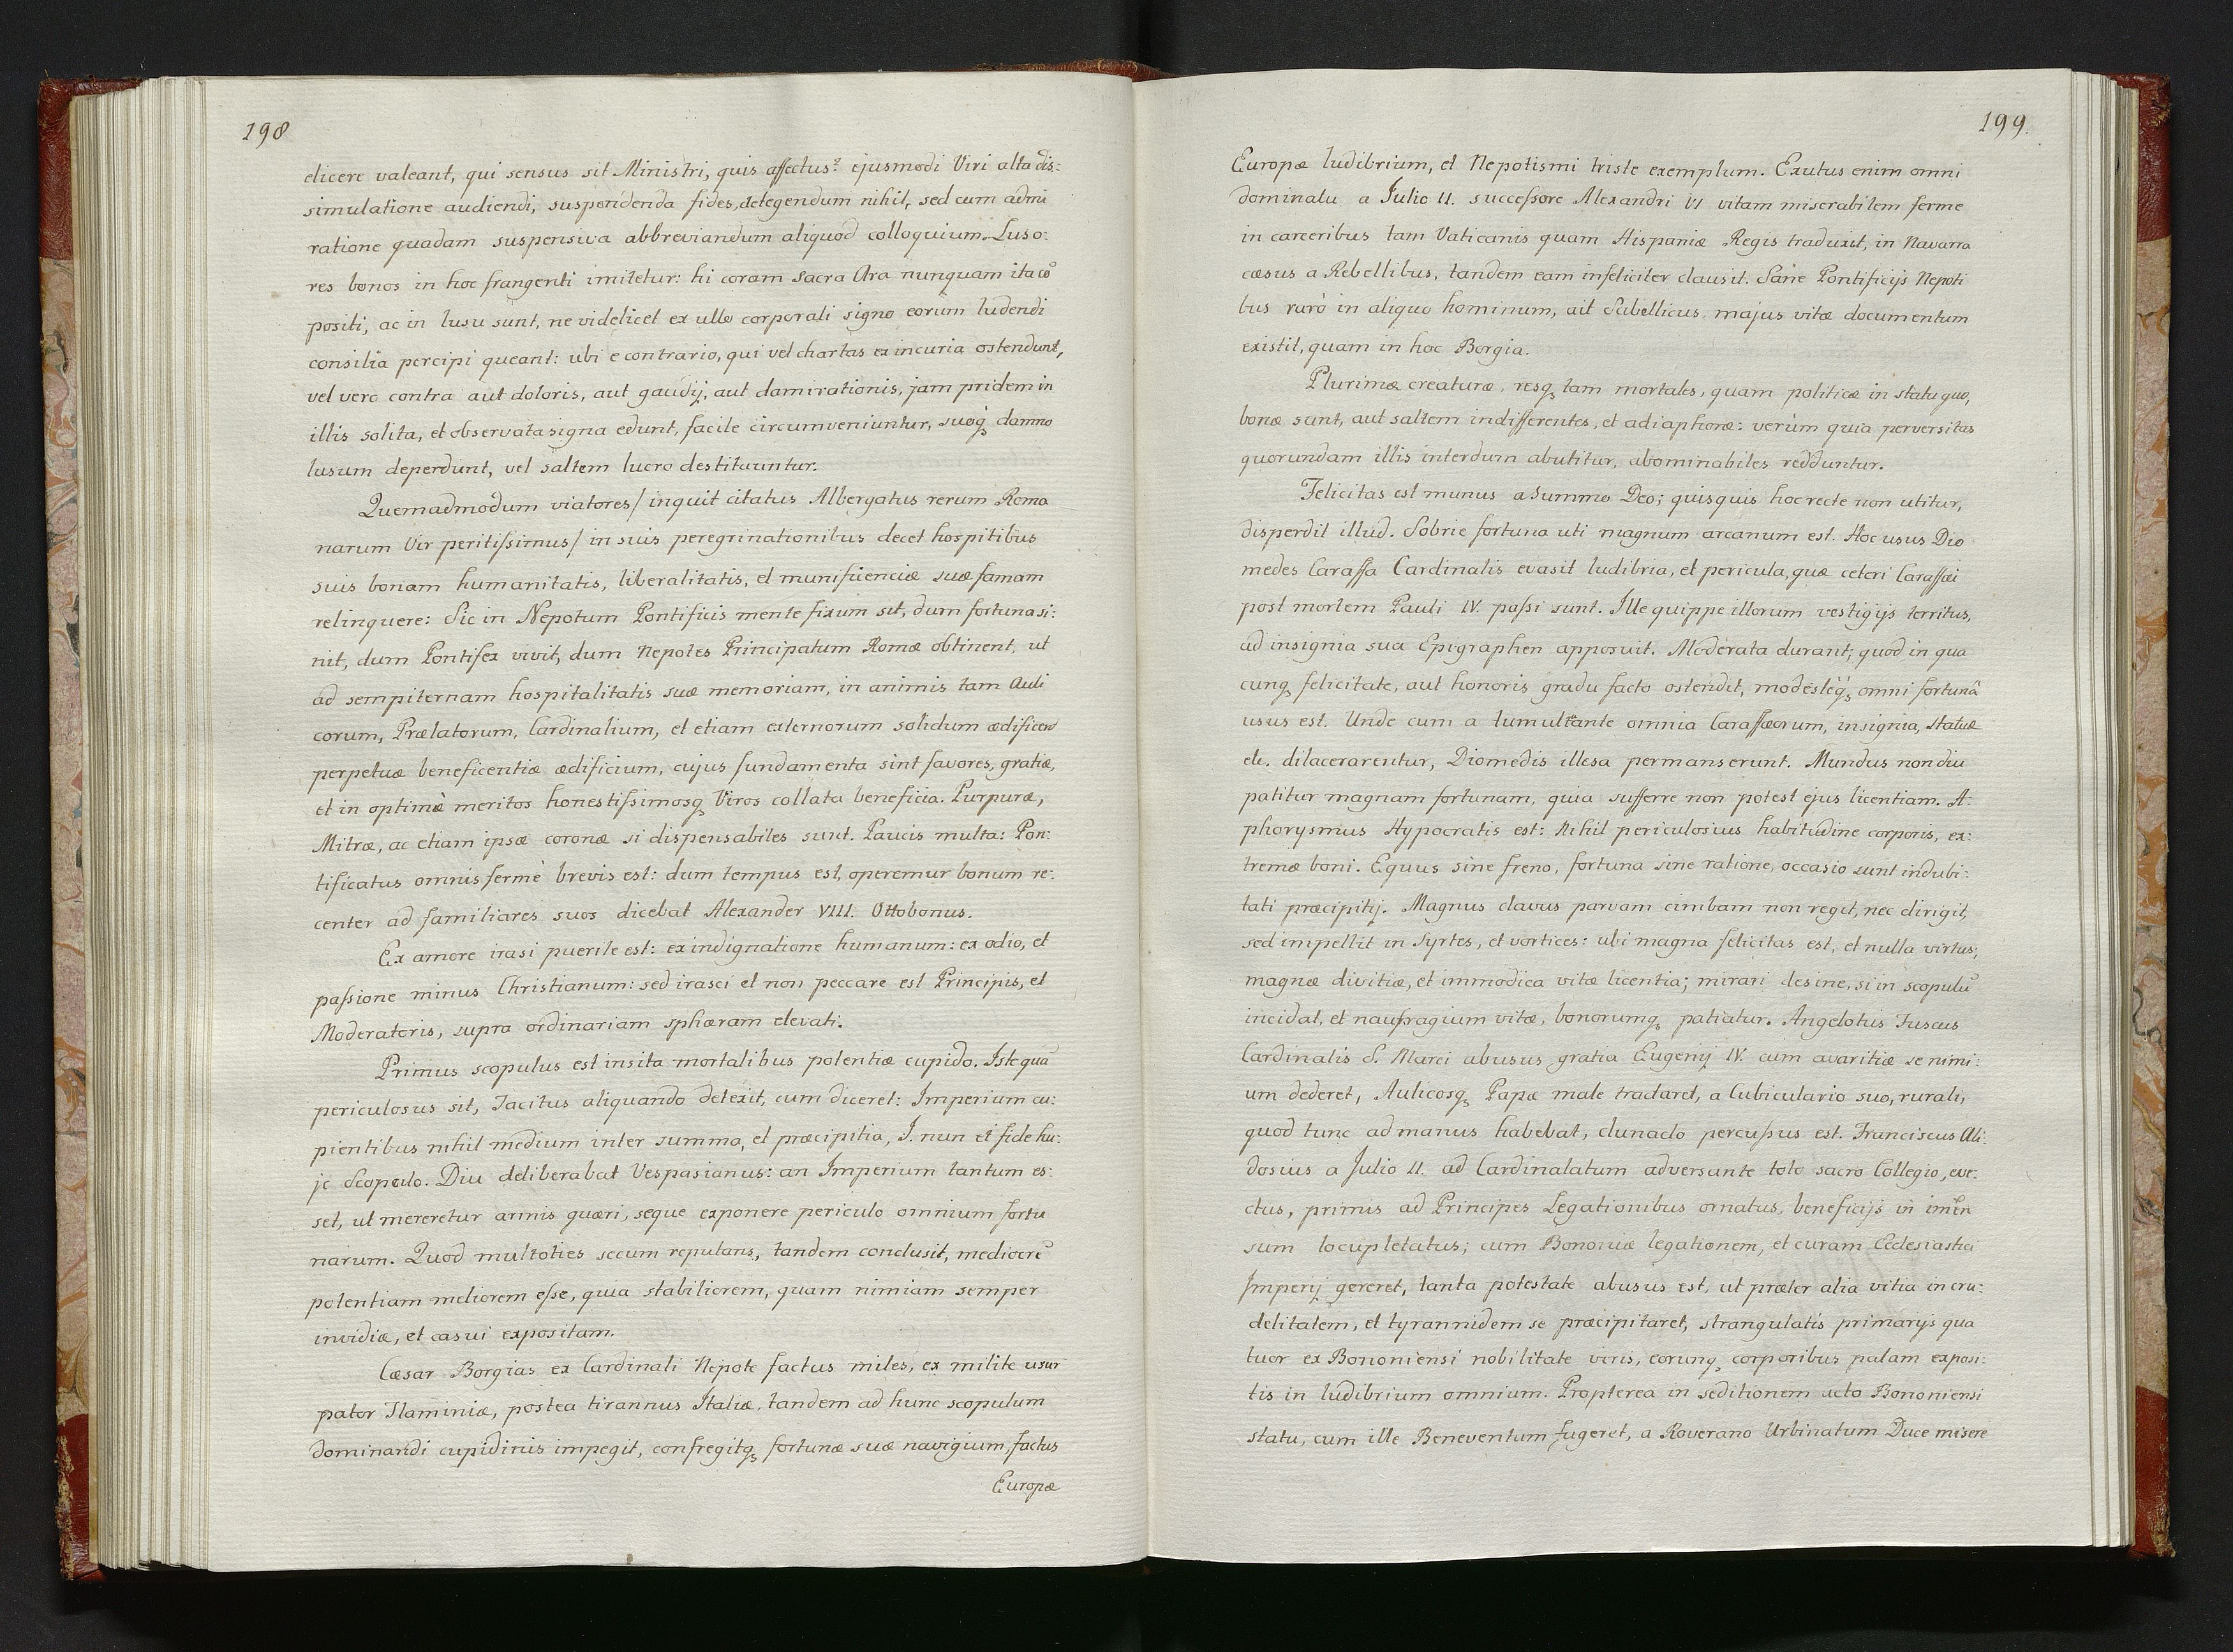 198
elicere valeant, qui sensus sit Ministri, quis affectus? ejusmodi Viri alta dis:
simulatione audiendi, suspendenda fides, detegendum nihil, sed cum admi
ratione quadam suspensiva abbreviandum aliquod colloquium. Luso:
res bonos in hoc frangenti imitetur: hi coram sacra Ara nunquam ita cõ
positi, ac in lusu sunt, ne videlicet ex ullo corporali signo eorum ludendi
consilia percipi queant: ubi e contrario, qui vel chartas ex incuria ostendunt,
vel vero contra aut doloris, aut gaudij, aut damirationis, jam pridem in
illis solita, et observata signa edunt, facile circumveniuntur, suoq̀ꝫ damno
lusum deperdunt, vel saltem lucro destituuntur.
Quemadmodum viatores/ inquit citatus Albergatus rerum Roma
narum Vir peritissimus/ in suis peregrinationibus decet hospitibus
suis bonam humanitatis, liberalitatis, et munificenciæ suæ famam
relinquere: Sic in Nepotum Pontificis mente fixum sit, dum fortuna si:
nit, dum Pontifex vivit, dum Nepotes Principatum Romæ obtinent, ut
ad sempiternam hospitalitatis suæ memoriam, in animis tam Auli
corum, Prælatorum, Cardinalium, et etiam externorum solidum ædificent
perpetuæ beneficentiæ ædificium, cujus fundamenta sint favores, gratiæ,
et in optimè meritos honestissimosqꝫ Viros collata beneficia. Purpuræ,
Mitræ, ac etiam ipsæ coronæ si dispensabiles sunt. Paucis multa: Pon:
tificatus omnis fermè brevis est: dum tempus est, operemur bonum re:
center ad familiares suos dicebat Alexander VIII. Ottobonus.
Ex amore irasi puerile est: ex indignatione humanum: ex odio, et
passione minus Christianum: sed irasci et non peccare est Principis, et
Moderatoris, supra ordinariam sphæram elevati.
Primus scopulus est insita mortalibus potentiæ cupido. Iste quã
periculosus sit, Tacitus aliquando detexit, cum diceret: Imperium cu:
pientibus nihil medium inter summa, et præcipitia, I. nun et fide hu:
jc Scopulo. Diu deliberabat Vespasianus: an Imperium tantum es:
set, ut mereretur armis quæri, seque exponere periculo omnium fortu
narum. Quod multoties secum reputans, tandem conclusit, mediocrẽ
potentiam meliorem esse, quia stabiliorem, quam nimiam semper
invidiæ, et casui expositam.
Cæsar Borgias ex Cardinali Nepote factus miles, ex milite usur
pator Flaminiæ, postea tirannus Italiæ, tandem ad hunc scopulum
dominandi cupidinis impegit, confregitqꝫ fortunæ suæ navigium, factus
Europæ
199.
Europæ ludibrium, et Nepotismi triste exemplum. Exutus enim omni
dominatu a Julio II. successore Alexandri VI vitam miserabilem ferme
in carceribus tam Vaticanis quam Hispaniæ Regis traduxit, in Navarra
cæsus a Rebellibus, tandem eam infeliciter clausit. Sane Pontificijs Nepoti
bus rarò in aliquo hominum, ait Sabellicus, majus vitæ documentum
existit, quam in hoc Borgia.
Plurimæ creaturæ, resqꝫ tam mortales, quam politicæ in statu quo,
bonæ sunt, aut saltem indifferentes, et adiaphoræ: verùm quia perversitas
quorundam illis interdum abutitur, abominabiles redduntur.
Felicitas est munus a Summo Deo; quisquis hoc recte non utitur,
disperdit illud. Sobrie fortuna uti magnum arcanum est. Hoc usus Dio
medes Caraffa Cardinalis evasit ludibria, et pericula, quæ ceteri Caraffæi
post mortem Pauli IV. passi sunt. Ille quippe illorum vestigijs territus,
ad insignia sua Epigraphen apposuit. Moderata durant; quod in qua
cunqꝫ felicitate, aut honoris gradu facto ostendit, modestèq̀ꝫ omni fortunâ
usus est. Unde cum a tumultante omnia Caraffæorum, insignia, statuæ
etc. dilacerarentur, Diomedis illesa permanserunt. Mundus non diu
patitur magnam fortunam, quia sufferre non potest ejus licentiam. A:
phorysmus Hypocratis est: Nihil periculosius habitudine corporis, ex:
tremæ boni. Equus sine freno, fortuna sine ratione, occasio sunt indubi:
tati præcipitij. Magnus clavus parvam cimbam non regit, nec dirigit,
sed impellit in Syrtes, et vortices: ubi magna felicitas est, et nulla virtus;
magnæ divitiæ, et immodica vitæ licentia; mirari desine, si in scopulũ
incidat, et naufragium vitæ, bonorumqꝫ patiatur. Angelotus Fuscus
Cardinalis S. Marci abusus gratia Eugenij IV. cum avaritiæ se nimi:
um dederet, Aulicosqꝫ Papæ male tractaret, a Cubiculario suo, rurali,
quod tunc ad manus habebat, clunaclo percussus est. Franciscus Ali:
dosius a Julio II. ad Cardinalatum adversante toto sacro Collegio, eve:
ctus, primis ad Principes Legationibus ornatus, beneficijs in im̃en
sum locupletatus; cum Bononiæ legationem, et curam Ecclesiastici
Imperij gereret, tanta potestate abusus est, ut præter alia vitia in cru:
delitatem, et tyrannidem se præcipitaret, strangulatis primarijs qua
tuor ex Bononiensi nobilitate viris, eorunqꝫ corporibus palam exposi:
tis in ludibrium omnium. Propterea in seditionem acto Bononiensi
statu, cum ille Beneventum fugeret, a Roverano Urbinatum Duce misere